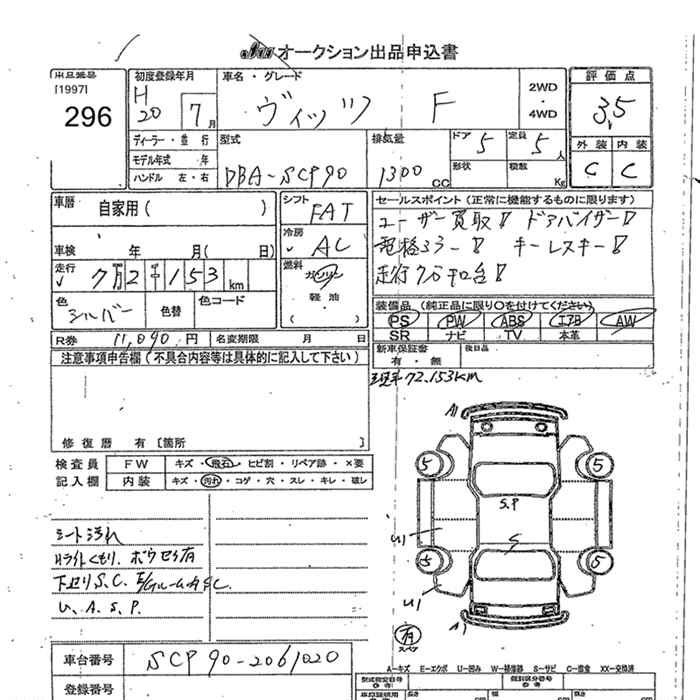 オークション出品申込書
出品番号 [1997] 296
初度登録年月 H 20 7月
車名・グレード ヴィッツ F
2WD・4WD
評価点 3.5
外装 内装
C C
ディーラー・並行
モデル年式 年
ハンドル 左・右
型式 DBA-SCP90
排気量 1300 CC
ドア 5 定員 5人
形状 積数 Kg
車歴 自家用( )
車検 年 月( 日)
走行 7万2千153 km
色 シルバー 色替 色コード
シフト FAT
冷房 AC
燃料 ガソリン 軽油
セールスポイント(正常に機能するものに限ります)
ユーザー買取!! ドアバイザー!!
電格ミラー!! キーレスキー!!
走行7万キロ台!!
装備品(純正品に限り○を付けてください)
PS PW ABS エアB AW
SR ナビ TV 本革
新車保証書 有・無 後日品
R券 11,090円 名変期限 月 日
注意事項申告欄(不具合内容等は具体的に記入して下さい)
72.153km
修復歴 有[箇所 ]
検査員 FW キズ・飛石・ヒビ割・リペア跡・×要
記入欄 内装 キズ・汚れ・コゲ・穴・スレ・キレ・破レ
A1
5 5
S.P
U1 S
5 5
U1
A1
有 スペア
シート汚れ
Hライトくもり. ボウセイ有
下廻りS.C. E/GルームA SC.
U. A. S. P.
A-キズ E-エクボ U-凹み W-補修跡 S-サビ C-腐食 XX-交換済
車台番号 SCP90-2061020
登録番号
型式指定番号 類別区分番号
長さ 幅 高さ